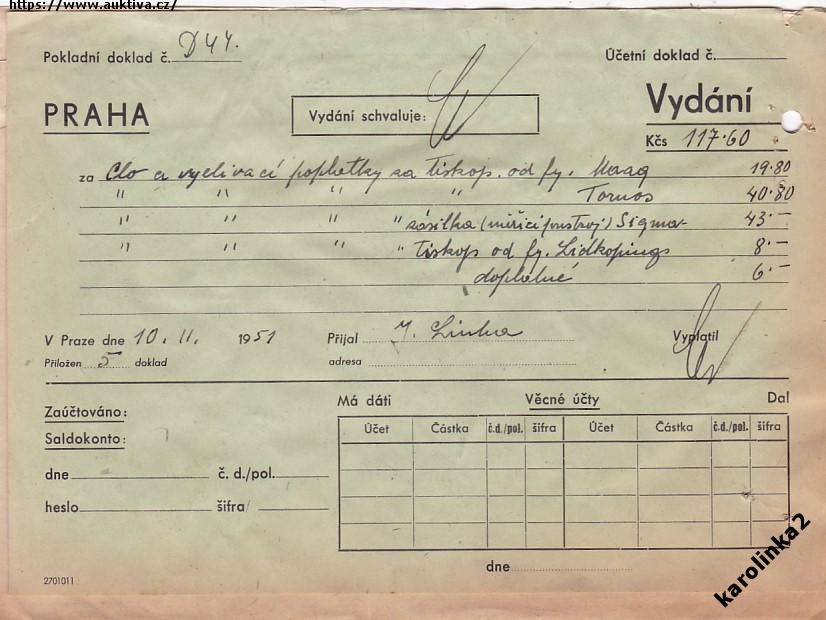 https://www.auktiva.cz/
Pokladní doklad č. D 44.
Účetní doklad č.
PRAHA
Vydání schvaluje:
Vydání
Kčs 117·60
za Clo a vyclivací poplatky za tiskop. od fy. Maag 19·80
" " " " Tornos 40·80
" " " " zásilka (měřicí přístroj) Sigma 43·–
" " " " tiskop od fy. Lidkopings 8·–
doplatné 6·–
V Praze dne 10. II. 1951 Přijal J. Linha Vyplatil
Přiložen 5 doklad adresa
Zaúčtováno:
Saldokonto:
dne č. d./pol.
heslo šifra
Má dáti Věcné účty Dal
Účet Částka č.d./pol. šifra Účet Částka č.d./pol. šifra
dne
2701011
karolinka2